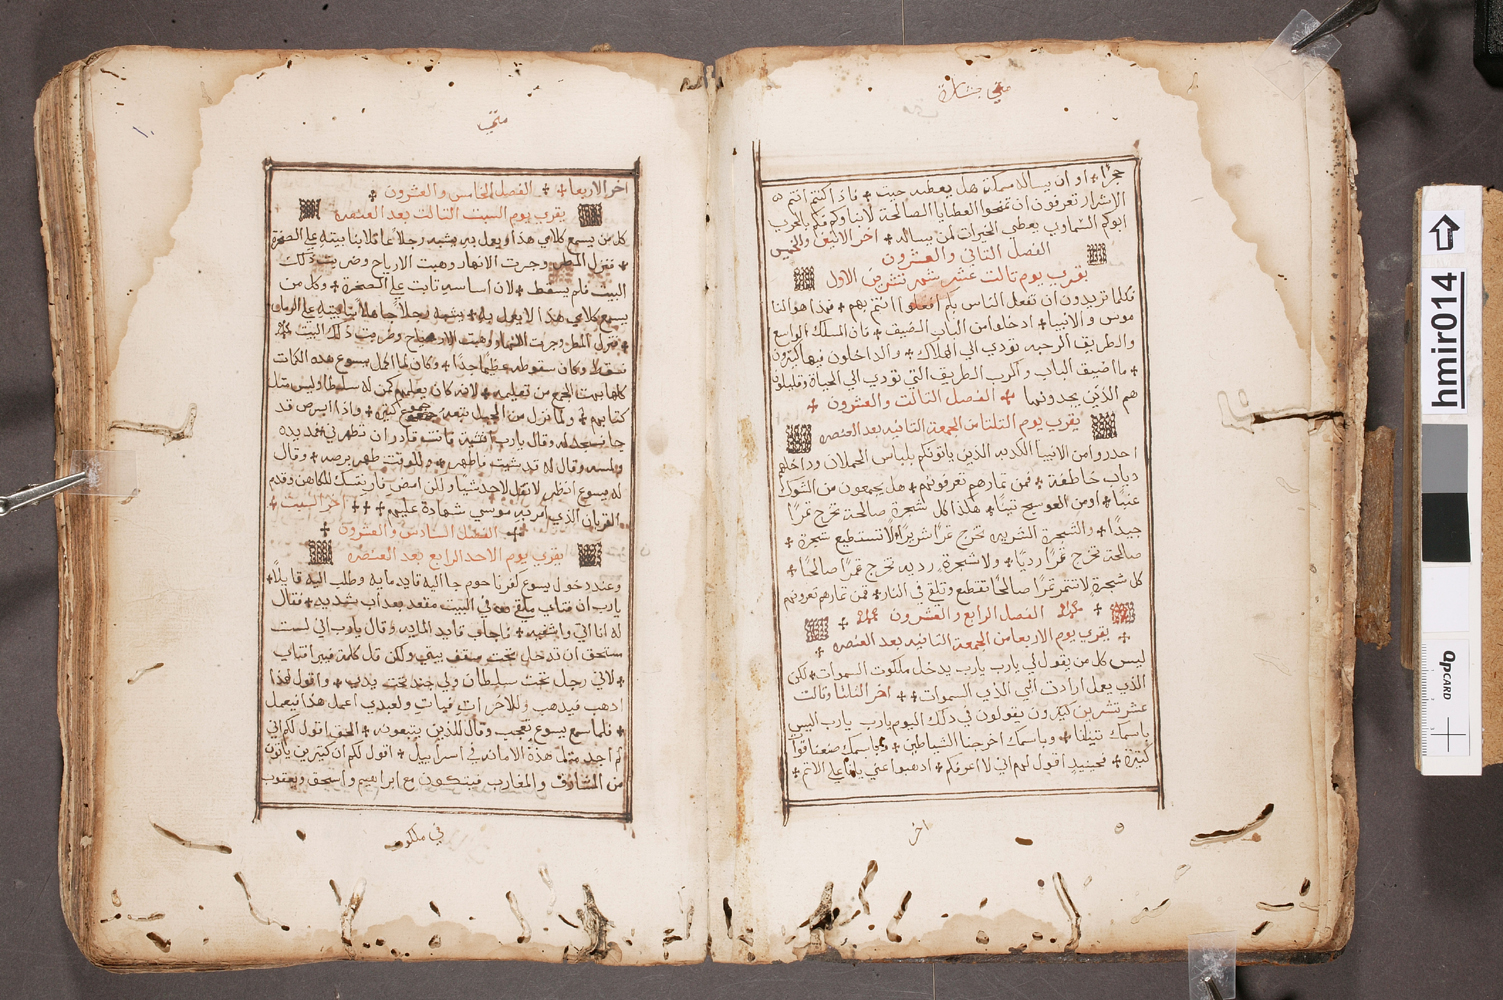 متى بشارة
حجرًا ✢ او ان يساله سمكة هل يعطيه حيت ✢ فاذا كنتم انتم
الاشرار تعرفون ان تمنحوا العطايا الصالحة لابناوكم فكم بالحري
ابوكم السماوي يعطي الخيرات لمن يساله ✢ اخر الاثنين والخميس
الفصل الثاني والعشرون
يقرى يوم تالت عشر شهر تشرين الاول
فكلما تريدون ان تفعل الناس بكم افعلوا انتم بهم ✢ فهذا هو الناموس
موسى والانبيا ✢ ادخلوا من الباب الضيف ✢ فان المسلك الواسع
والطريف الرحبه تودي الي الهلاك ✢ والداخلون فيها كثيرون
✢ ما اضيف الباب واكرب الطريف التي تودي الي الحياة وقليلون
هم الذين يجدونها ✢ الفصل التالت والعشرون ✢
يقرى يوم التلتا من الجمعة التانيه بعد العنصره
احدروا من الانبيا الكدبه الذين ياتونكم بلباس الحملان وداخلهم
دياب خاطفة ✢ فمن تمارهم تعرفونهم ✢ هل يجمعون من الشوك
عنبًا ✢ او من العوسج تينًا ✢ هكذا كل شجرة صالحة تخرج تمرًا
جيدًا ✢ والشجرة الشريره تخرج تمرًا شريرًا ✢ لا تستطيع شجرة ✢
صالحة تخرج تمرًا رديًا ✢ ولا شجرة رديه تخرج تمرًا صالحًا ✢
كل شجرة لا تتمر تمرًا صالحًا تقطع وتلقي في النار ✢ فمن تمارهم تعرفونهم
✢ الفصل الرابع والعشرون ✢
✢ يقرى يوم الاربعا من الجمعة التانيه بعد العنصره ✢
ليس كل من يقول لي يارب يارب يدخل ملكوت السموات ✢ لكن
الذي يعمل ارادة ابي الذي السموات ✢✢ اخر التلتا وتالت
عشر تشرين كثيرون يقولون في ذلك اليوم يارب يارب اليس
باسمك تنبانا ✢ وباسمك اخرجنا الشياطين ✢ وباسمك صنعنا قواة
كثيرة ✢ فحينيدٍ اقول لهم اني لا اعرفكم ✢ ادهبوا عني يا فاعلي الاتم ✢
اخر
متى
اخر الاربعا ✢ ✢ الفصل الخامس والعشرون ✢
يقرى يوم السبت التالت بعد العنصره
كل من يسمع كلامي هذا ويعمل به يشبه رجلاً عاقلا بنا بيته علي الصخرة
✢ فنزل المطر وجرت الانهار وهبت الارياح وضربت ذلك
البيت فلم يسقط ✢ لان اساسه تابت علي الصخرة ✢ وكل من
يسمع كلامي هذا لا يعمل به ✢ يشبه رجلاً جاهلاً بنا بيته علي الرمل
✢ فنزل المطر وجرت الانهار وهبت الارياح وضربت ذلك البيت
فسقط وكان سقوطه عظيمًا جدًا ✢ وكان لما اكمل يسوع هده الكلمات
كلها بهت الجمع من تعليمه ✢ لانه كان يعلمهم كمن له سلطان وليس متل
كتابهم ✢ ولما نزل من الجبل تبعه جموع كبير ✢ واذا ابرص قد
جا فسجد له وقال يارب انشيت فانت قادر ان تطهرني فمد يده
ولمسه وقال له قد شيت فاطهر ✢ وللوقت طهر برصه ✢ وقال
له يسوع انظر لا تقل لاحد شيا ولكن امض فار نفسك للكاهن وقدم
القربان الذي امر به موسي شهادة عليهم ✢✢✢ اخر السبت ✢
✢ الفصل السادس والعشرون ✢
يقرى يوم الاحد الرابع بعد العنصره
وعند دخول يسوع كفرناحوم جا اليه قايد مايه وطلب اليه قايلاً ✢
يارب ان فتاي ملقي في البيت مقعد بعداب شديد ✢ فقال
له انا اتي واشفيه ✢ فاجاب قايد المايه وقال يارب اني لست
مستحق ان تدخل تحت سقف بيتي ولكن قل كلمة فيبرا فتاي
✢ لاني رجل تحت سلطان ولي جند تحت يدي ✢ واقول لهذا
ادهب فيدهب وللاخر ات فياتِ ولعبدي اعمل هذا فيعمل
✢ فلما سمع يسوع تعجب وقال للذين يتبعونه ✢ الحق اقول لكم اني
لم اجد متل هذة الامانه في اسراييل ✢ اقول لكم ان كثيرين ياتون
من المشارف والمغارب فيتكون مع ابراهيم واسحق ويعقوب
في ملكوت
hmir014
QPCARD